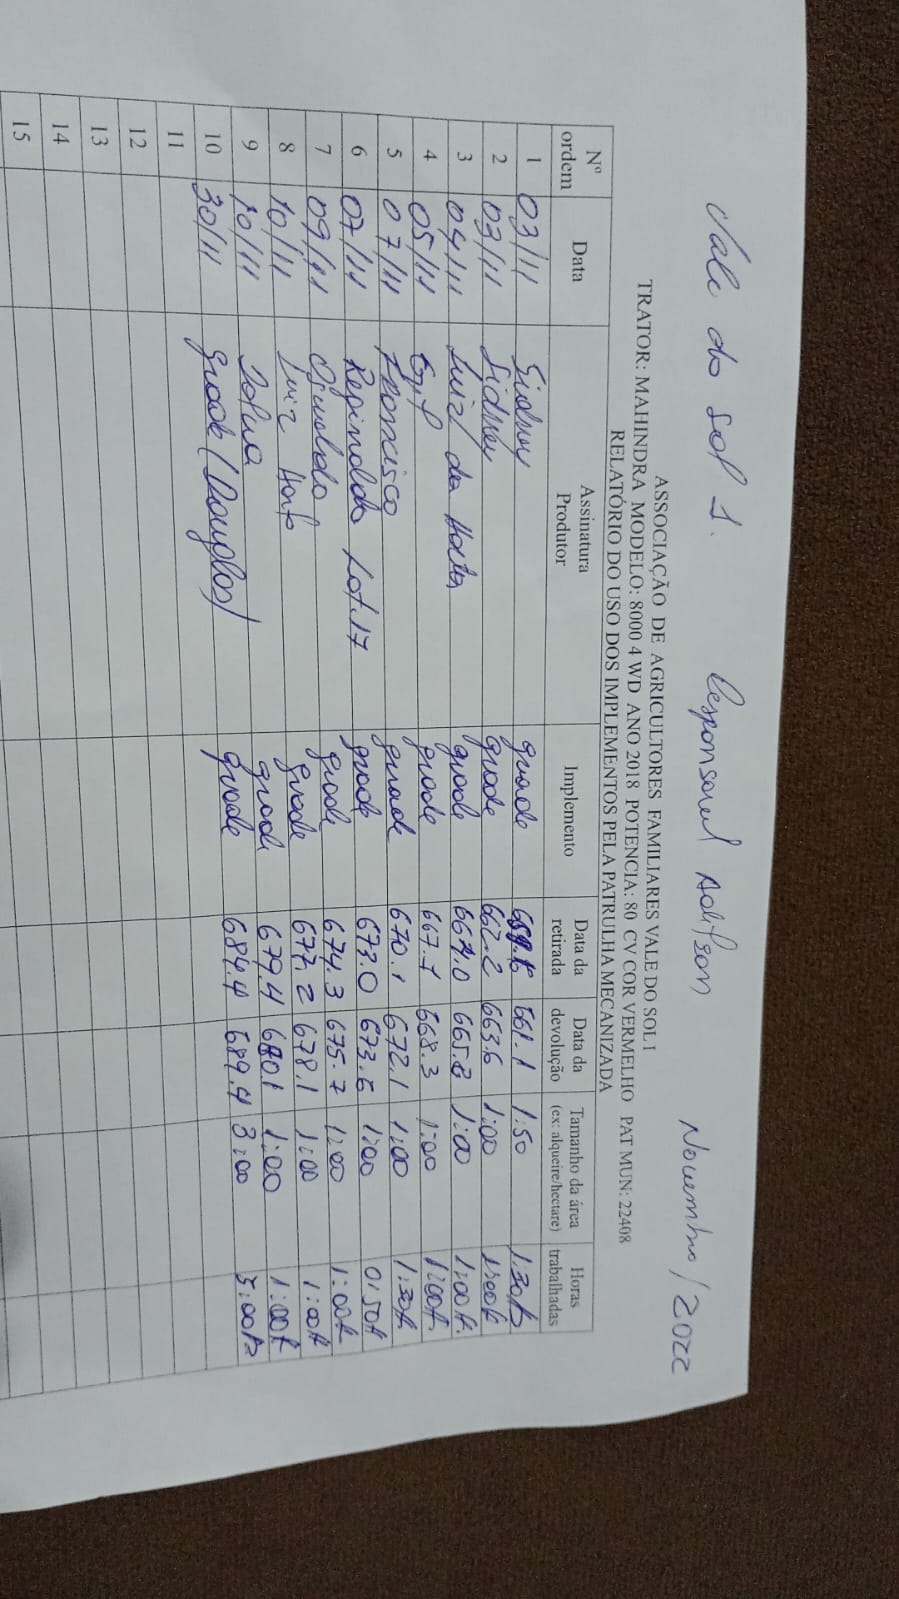 Vale do Sol 1. Responsavel Adilson Novembro/2022
ASSOCIAÇÃO DE AGRICULTORES FAMILIARES VALE DO SOL I
TRATOR: MAHINDRA MODELO: 8000 4 WD ANO 2018 POTENCIA: 80 CV COR VERMELHO PAT MUN: 22408
RELATÓRIO DO USO DOS IMPLEMENTOS PELA PATRULHA MECANIZADA
Nº ordem Data Assinatura Produtor Implemento Data da retirada Data da devolução Tamanho da área (ex: alqueire/hectare) Horas trabalhadas
1 03/11 Sidney grade 661.1 1:50 1:30h
2 03/11 Sidney grade 662.2 663.6 1:00 1:00h
3 04/11 Luiz da Horta grade 664.0 665.8 1:00 1:00h.
4 05/11 grade 667.7 668.3 1:00 1:00h.
5 07/11 Francisco grade 670.1 672.1 1:00 1:30h.
6 07/11 Reginaldo Lot.17 grade 673.0 673.6 1:00 0:50h
7 09/11 grade 674.3 675.7 1:00 1:00h
8 10/11 Luiz Horta grade 677.2 678.1 1:00 1:00h
9 10/11 grade 679.4 680.1 1:00 1:00h
10 30/11 grade (Douglas) grade 684.4 689.4 3:00 5:00hs
11
12
13
14
15